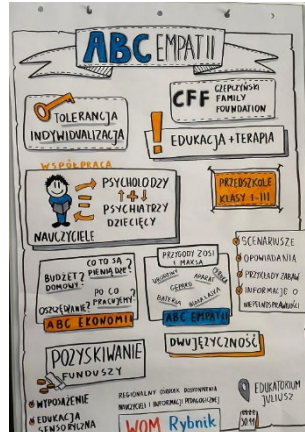 ABC EMPATII
TOLERANCJA
INDYWIDUALIZACJA
CFF CZEPCZYŃSKI
FAMILY
FOUNDATION
! EDUKACJA + TERAPIA
WSPÓŁPRACA
PSYCHOLODZY
PSYCHIATRZY
DZIECIĘCY
NAUCZYCIELE
PRZEDSZKOLE
KLASY I-III
CO TO SĄ
PIENIĄDZE?
BUDŻET
DOMOWY?
PO CO
PRACUJEMY?
OSZCZĘDZANIE?
ABC EKONOMII
PRZYGODY ZOSI
I MAKSA
URODZINY
APARAT
GEPARD
BATERIA
ABC EMPATII
SCENARIUSZE
OPOWIADANIA
PRZYKŁADY ZABAW
INFORMACJE O
NIEPEŁNOSPRAWNOŚCI
DWUJĘZYCZNOŚĆ
POZYSKIWANIE
FUNDUSZY
WYPOSAŻENIE
EDUKACJA
SENSORYCZNA
REGIONALNY OŚRODEK DOSKONALENIA
NAUCZYCIELI I INFORMACJI PEDAGOGICZNEJ
WOM Rybnik
EDUKATORIUM
JULIUSZ